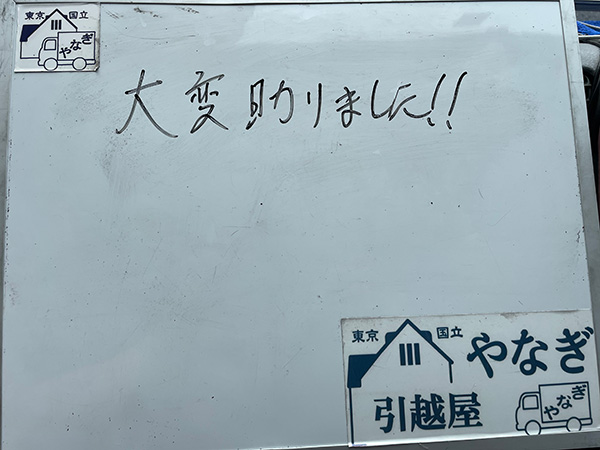 東京 国立
やなぎ
大変助りました!!
東京 国立 やなぎ
引越屋
やなぎ